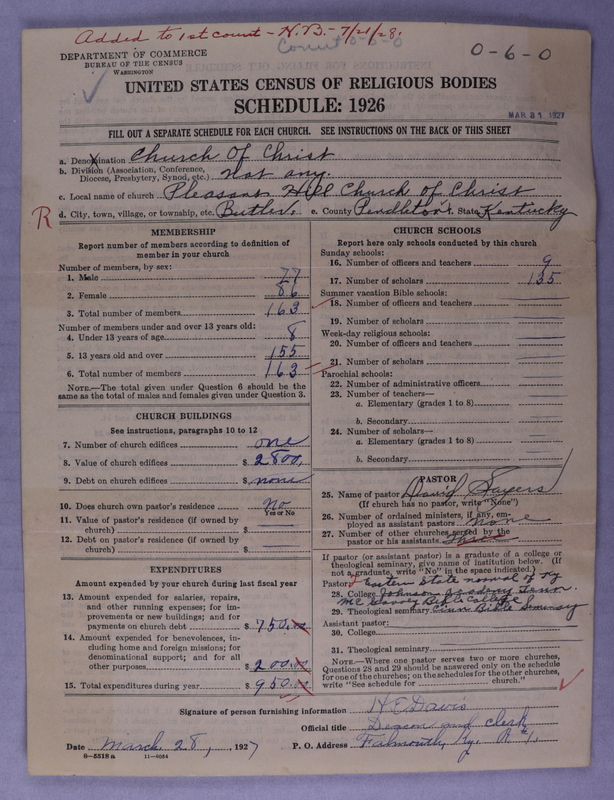 Added to 1st count - N.B. - 7/21/28.
Count 0-6-0
0-6-0
DEPARTMENT OF COMMERCE
BUREAU OF THE CENSUS
WASHINGTON
UNITED STATES CENSUS OF RELIGIOUS BODIES
SCHEDULE: 1926
MAR 31 1927
FILL OUT A SEPARATE SCHEDULE FOR EACH CHURCH. SEE INSTRUCTIONS ON THE BACK OF THIS SHEET
a. Denomination Church Of Christ
b. Division (Association, Conference, Diocese, Presbytery, Synod, etc.) not any.
c. Local name of church Pleasant Hill Church of Christ
R
d. City, town, village, or township, etc. Butler, e. County Pendleton f. State Kentucky
MEMBERSHIP
Report number of members according to definition of
member in your church
Number of members, by sex:
1. Male 77
2. Female 86
3. Total number of members 163
Number of members under and over 13 years old:
4. Under 13 years of age 8
5. 13 years old and over 155
6. Total number of members 163
NOTE.—The total given under Question 6 should be the
same as the total of males and females given under Question 3.
CHURCH BUILDINGS
See instructions, paragraphs 10 to 12
7. Number of church edifices one
8. Value of church edifices $ 2800,
9. Debt on church edifices $ none
10. Does church own pastor's residence No
Yes or No
11. Value of pastor's residence (if owned by
church) $
12. Debt on pastor's residence (if owned by
church) $
EXPENDITURES
Amount expended by your church during last fiscal year
13. Amount expended for salaries, repairs,
and other running expenses; for im-
provements or new buildings; and for
payments on church debt $ 750.00
14. Amount expended for benevolences, in-
cluding home and foreign missions; for
denominational support; and for all
other purposes $ 200.00
15. Total expenditures during year $ 950.00
CHURCH SCHOOLS
Report here only schools conducted by this church
Sunday schools:
16. Number of officers and teachers 9
17. Number of scholars 135
Summer vacation Bible schools:
18. Number of officers and teachers
19. Number of scholars
Week-day religious schools:
20. Number of officers and teachers
21. Number of scholars
Parochial schools:
22. Number of administrative officers
23. Number of teachers—
a. Elementary (grades 1 to 8)
b. Secondary
24. Number of scholars—
a. Elementary (grades 1 to 8)
b. Secondary
PASTOR
25. Name of pastor David Sayers
(If church has no pastor, write "None")
26. Number of ordained ministers, if any, em-
ployed as assistant pastors none
27. Number of other churches served by the
pastor or his assistants
If pastor (or assistant pastor) is a graduate of a college or
theological seminary, give name of institution below. (If
not a graduate, write "No" in the space indicated.)
Pastor: Eastern State normal of Ky
28. College Johnson Academy Tenn.
Mc Garvey Bible College
29. Theological seminary Cinn Bible Seminary
Assistant pastor:
30. College
31. Theological seminary
NOTE.—Where one pastor serves two or more churches,
Questions 28 and 29 should be answered only on the schedule
for one of the churches; on the schedules for the other churches,
write "See schedule for church."
Signature of person furnishing information H O Davis
Official title Deacon and Clerk
Date March 28, 1927 P. O. Address Falmouth, Ky. R #1.
8—5518 a 11—9054